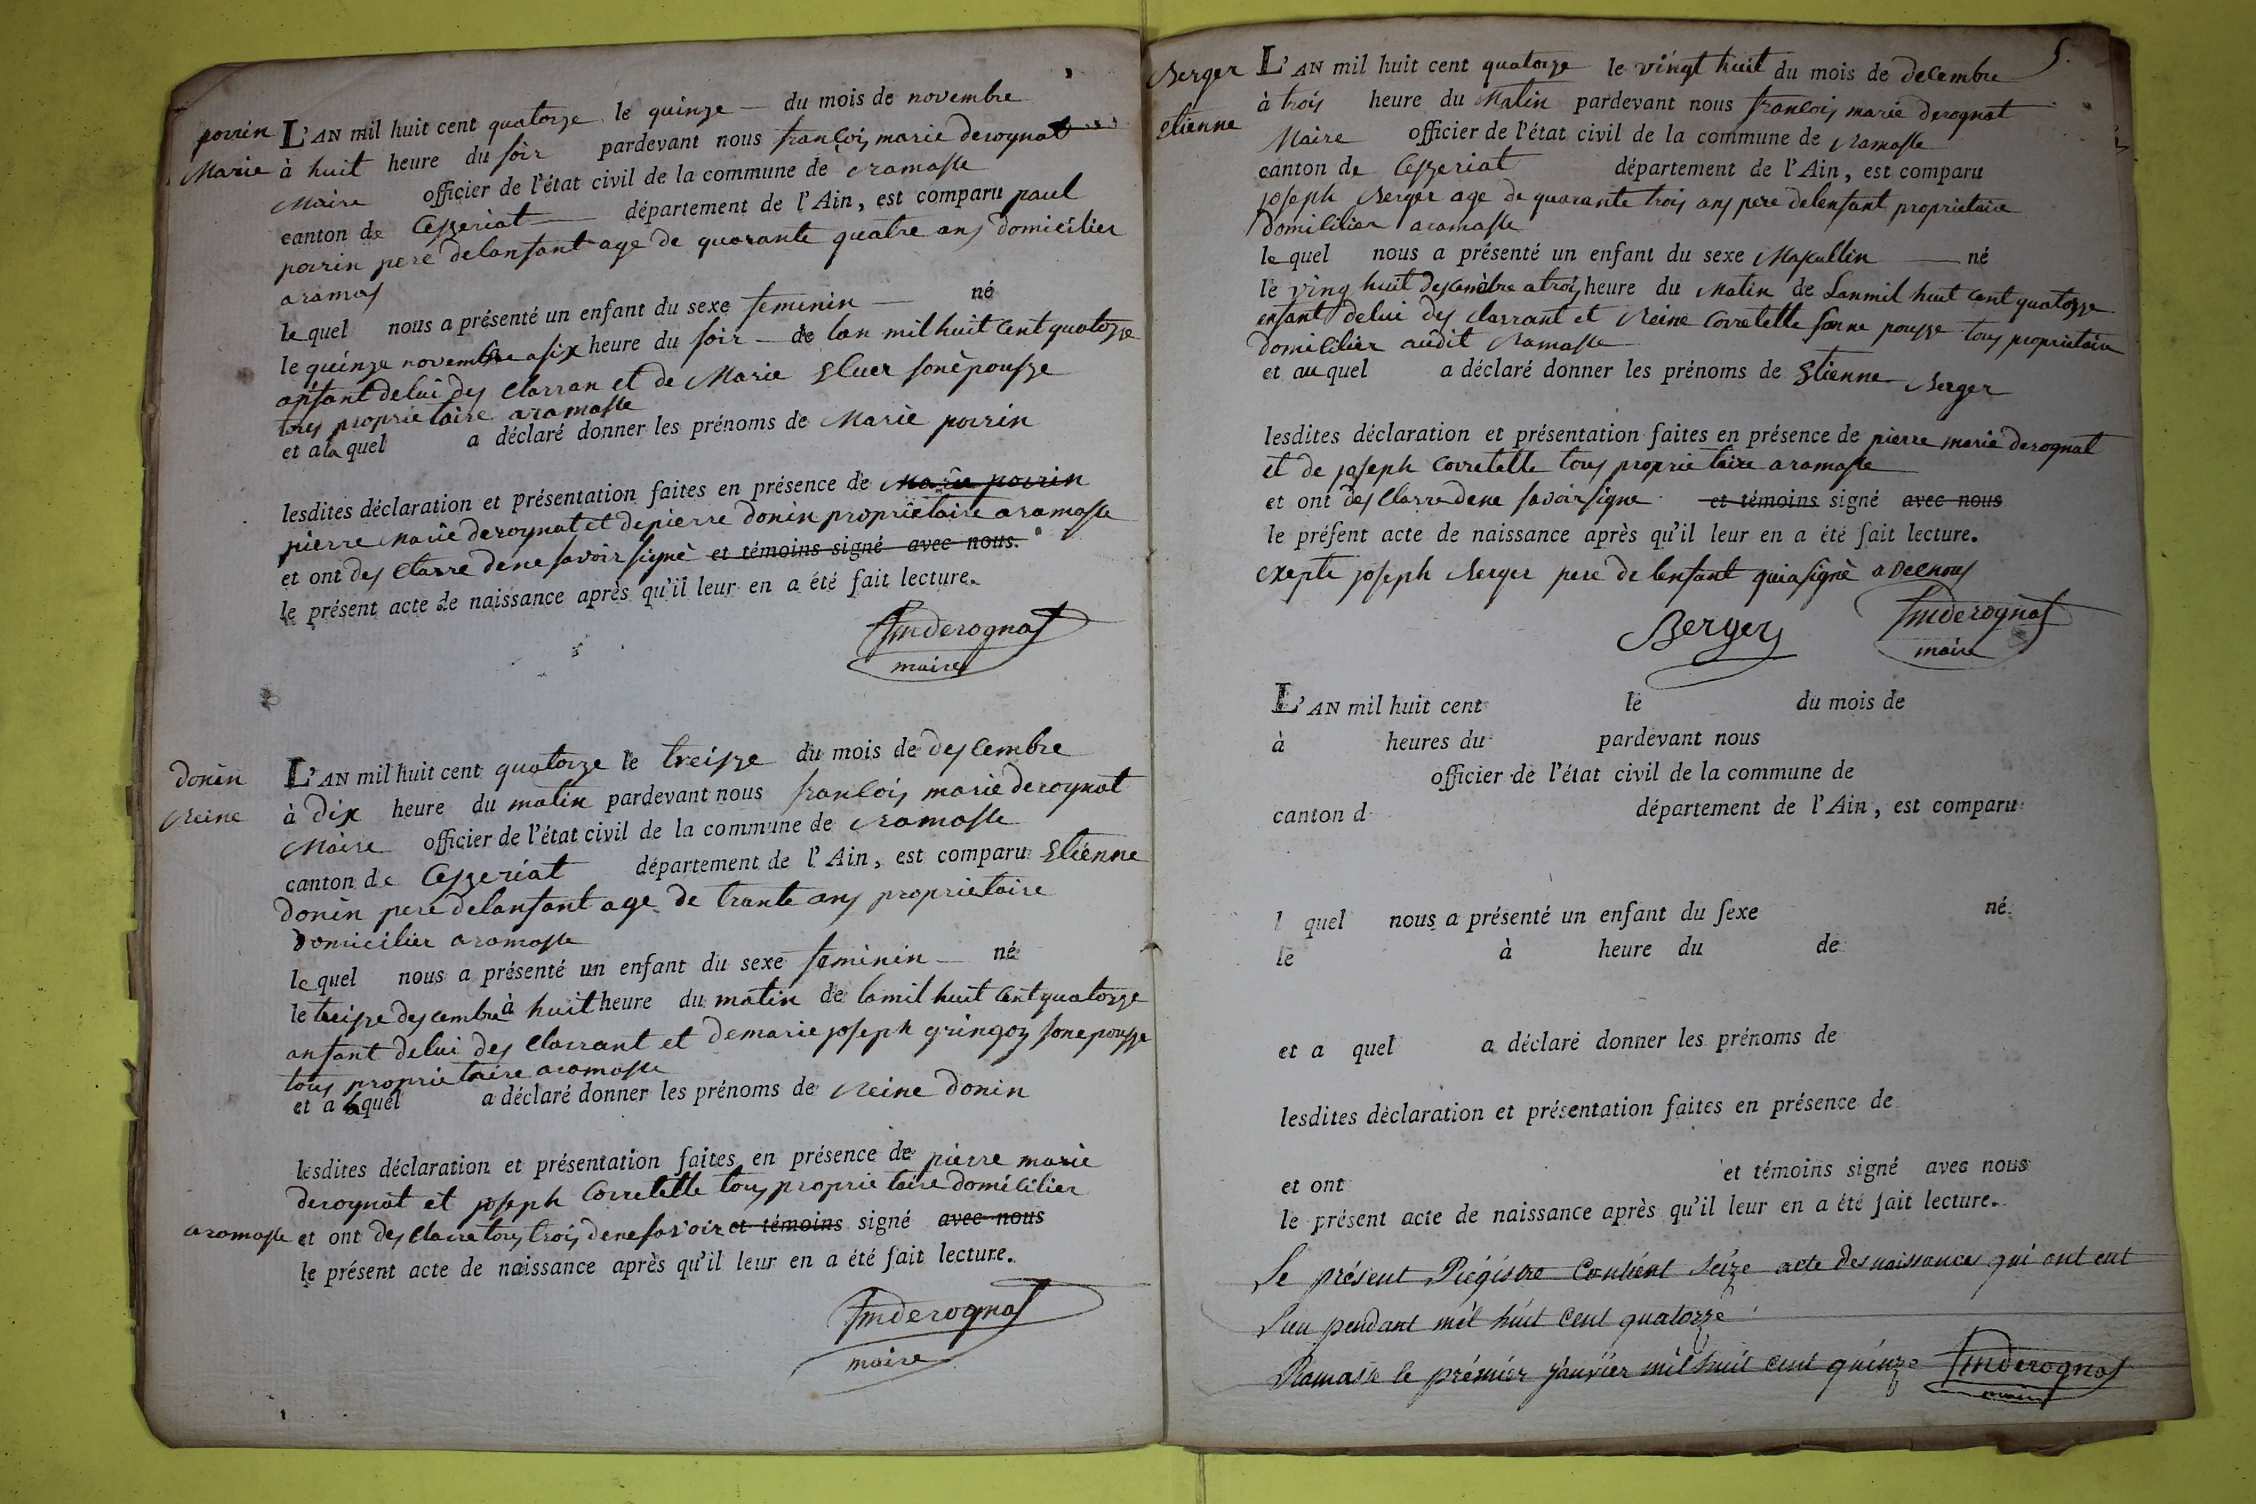 porrin
Marie
L'AN mil huit cent quatorze le quinze du mois de novembre
à huit heure du soir pardevant nous françois marie derognat
Maire officier de l'état civil de la commune de ramasse
canton de Cesseriat département de l'Ain, est comparu paul
porrin pere delansant age de quarante quatre ans domicilier
aramas
le quel nous a présenté un enfant du sexe feminin né
le quinze novembre a six heure du soir de lan mil huit cent quatorze
ansant delui des clarran et de Marie son èpousze
tous proprietaire aramasse
et ala quel a déclaré donner les prénoms de Marie porrin
lesdites déclaration et présentation faites en présence de Marie porrin
pierre marie derognat et de pierre donin propriètaire aramasse
et ont des clarre dene savoir signè et témoins signé avec nous.
le présent acte de naissance après qu'il leur en a été fait lecture.
fmderognat
maire
donin
reine
L'AN mil huit cent quatorze le treisze du mois de descembre
à dix heure du matin pardevant nous francois marie derognat
Maire officier de l'état civil de la commune de ramasse
canton de Cesseriat département de l'Ain, est comparu Etienne
donin pere delansant age de trante ans proprietaire
domicilier aramasse
le quel nous a présenté un enfant du sexe feminin né
le treisze descembre à huit heure du matin de lamil huit cent quatorze
ansant delui des clarrant et demarie joseph gringoz son epousze
tous proprietaire aramasse
et a la quel a déclaré donner les prénoms de reine donin
lesdites déclaration et présentation faites en présence de pierre marie
derognat et joseph Corretelle tous proprietaire domicilier
aramasse et ont des clarre tous trois dene savoir et témoins signé avec nous
le présent acte de naissance après qu'il leur en a été fait lecture.
fmderognat
maire
5.
Berger
etienne
L'AN mil huit cent quatorze le vingt huit du mois de decembre
à trois heure du Matin pardevant nous francois marie derognat
Maire officier de l'état civil de la commune de ramasse
canton de Cesseriat département de l'Ain, est comparu
joseph Berger age de quarante trois ans pere delensant proprietaire
domicilier aramasse
le quel nous a présenté un enfant du sexe Masculin né
le ving huit descembre a trois heure du Matin de Lanmil huit cent quatorze
ensant delui des clarrant et Reine Corretelle sonne pousze tous proprietaire
domicilier audit Ramasse
et au quel a déclaré donner les prénoms de Etienne Berger
lesdites déclaration et présentation faites en présence de pierre marie derognat
et de joseph Corretelle tous proprietaire aramasse
et ont des clarre dene savoir signe et témoins signé avec nous
le présent acte de naissance après qu'il leur en a été fait lecture.
exepte joseph Berger pere de lensant qui a signè avecnous
Berger
fmderognat
maire
L'AN mil huit cent le du mois de
à heures du pardevant nous
officier de l'état civil de la commune de
canton d département de l'Ain, est comparu
l quel nous a présenté un enfant du sexe né
le à heure du de
et a quel a déclaré donner les prénoms de
lesdites déclaration et présentation faites en présence de
et ont et témoins signé avec nous
le présent acte de naissance après qu'il leur en a été fait lecture.
Le présent Régistre contient seize acte des naissances qui ont eut
Lieu pendant mil huit cent quatorze
Ramasse le prémier janvier mil huit cent quinze fmderognat
maire